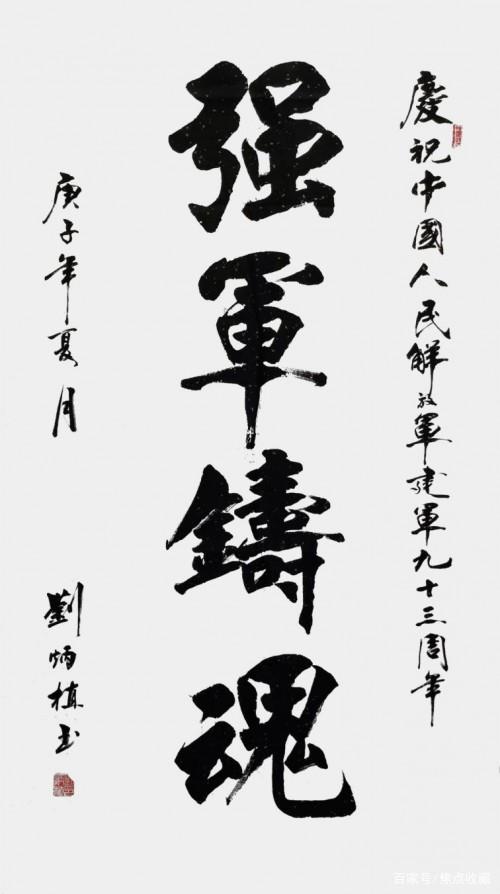 慶祝中國人民解放軍建軍九十三周年
强軍鑄魂
庚子年夏月
劉炳植书
百家号/焦点收藏